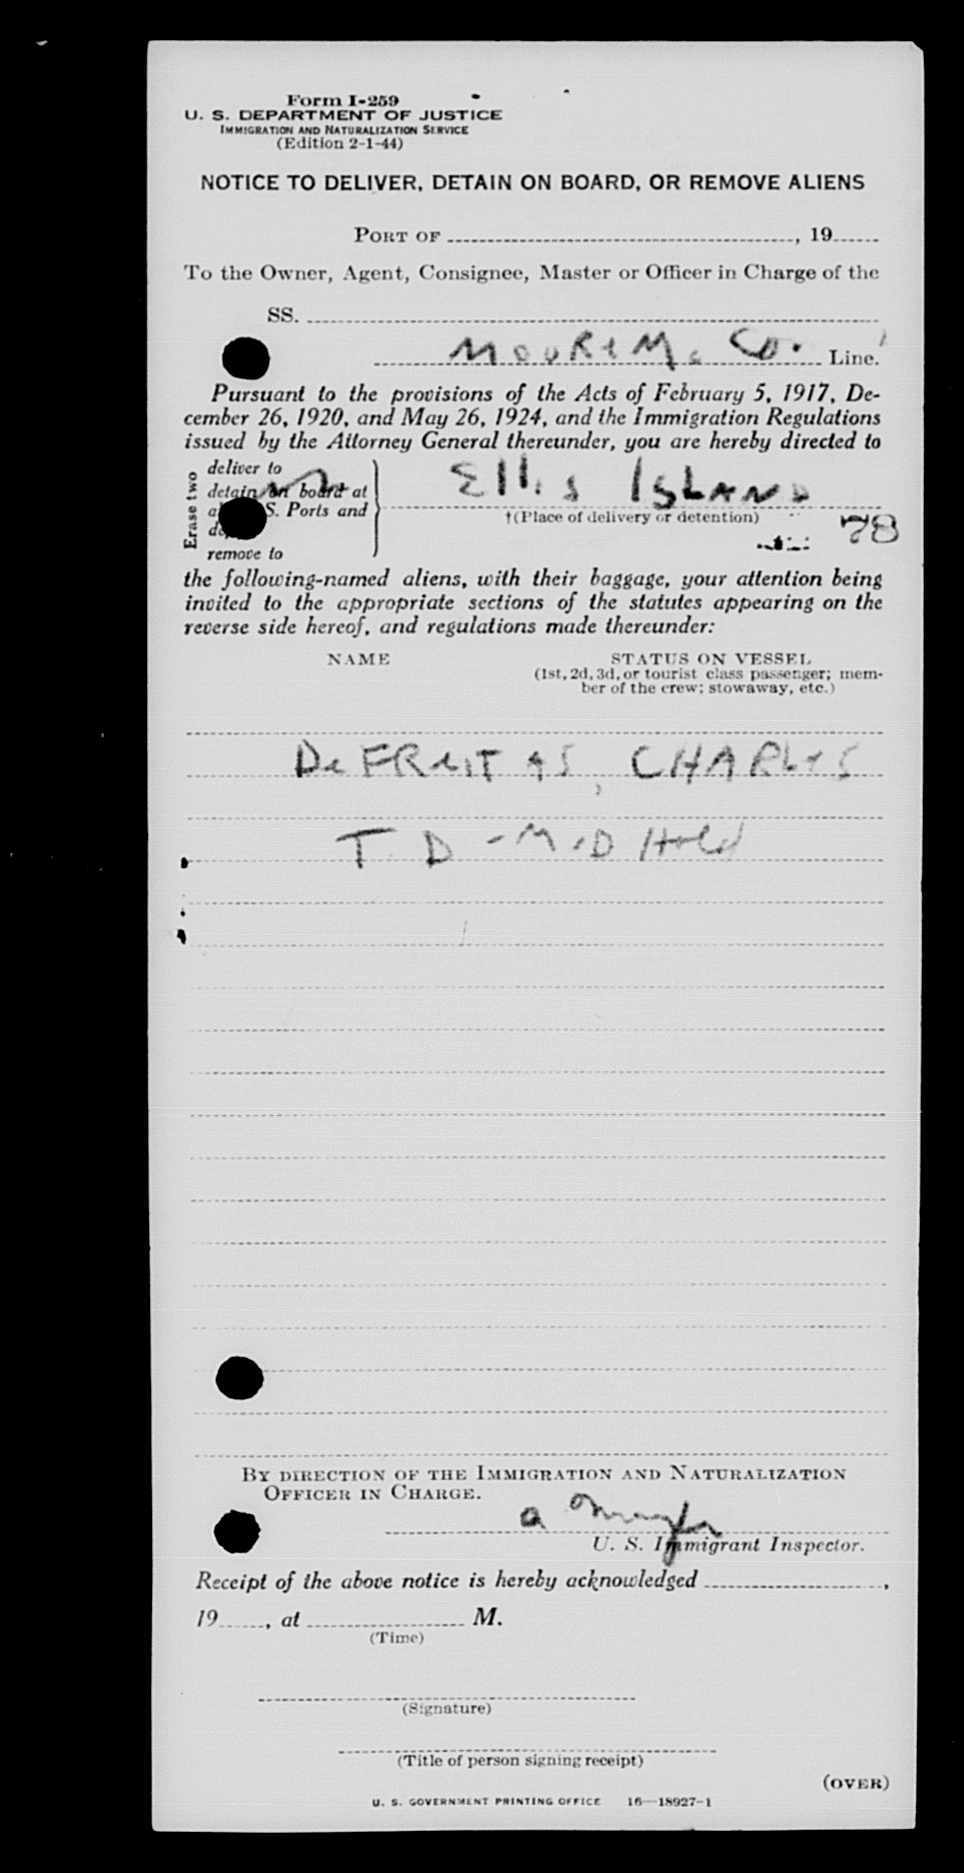 Form I-259
U. S. DEPARTMENT OF JUSTICE
IMMIGRATION AND NATURALIZATION SERVICE
(Edition 2-1-44)
NOTICE TO DELIVER, DETAIN ON BOARD, OR REMOVE ALIENS
PORT OF , 19
To the Owner, Agent, Consignee, Master or Officer in Charge of the
SS.
MOORE Mc Co. Line.
Pursuant to the provisions of the Acts of February 5, 1917, De-
cember 26, 1920, and May 26, 1924, and the Immigration Regulations
issued by the Attorney General thereunder, you are hereby directed to
Erase two
deliver to
detain on board at
S. Ports and
remove to
Ellis ISLAND
†(Place of delivery or detention)
78
the following-named aliens, with their baggage, your attention being
invited to the appropriate sections of the statutes appearing on the
reverse side hereof, and regulations made thereunder:
NAME STATUS ON VESSEL
(1st, 2d, 3d, or tourist class passenger; mem-
ber of the crew; stowaway, etc.)
DeFREITAS, CHARLES
T D - M.D Hold
BY DIRECTION OF THE IMMIGRATION AND NATURALIZATION
OFFICER IN CHARGE.
U. S. Immigrant Inspector.
Receipt of the above notice is hereby acknowledged ,
19 , at M.
(Time)
(Signature)
(Title of person signing receipt)
(OVER)
U. S. GOVERNMENT PRINTING OFFICE 16—18927-1